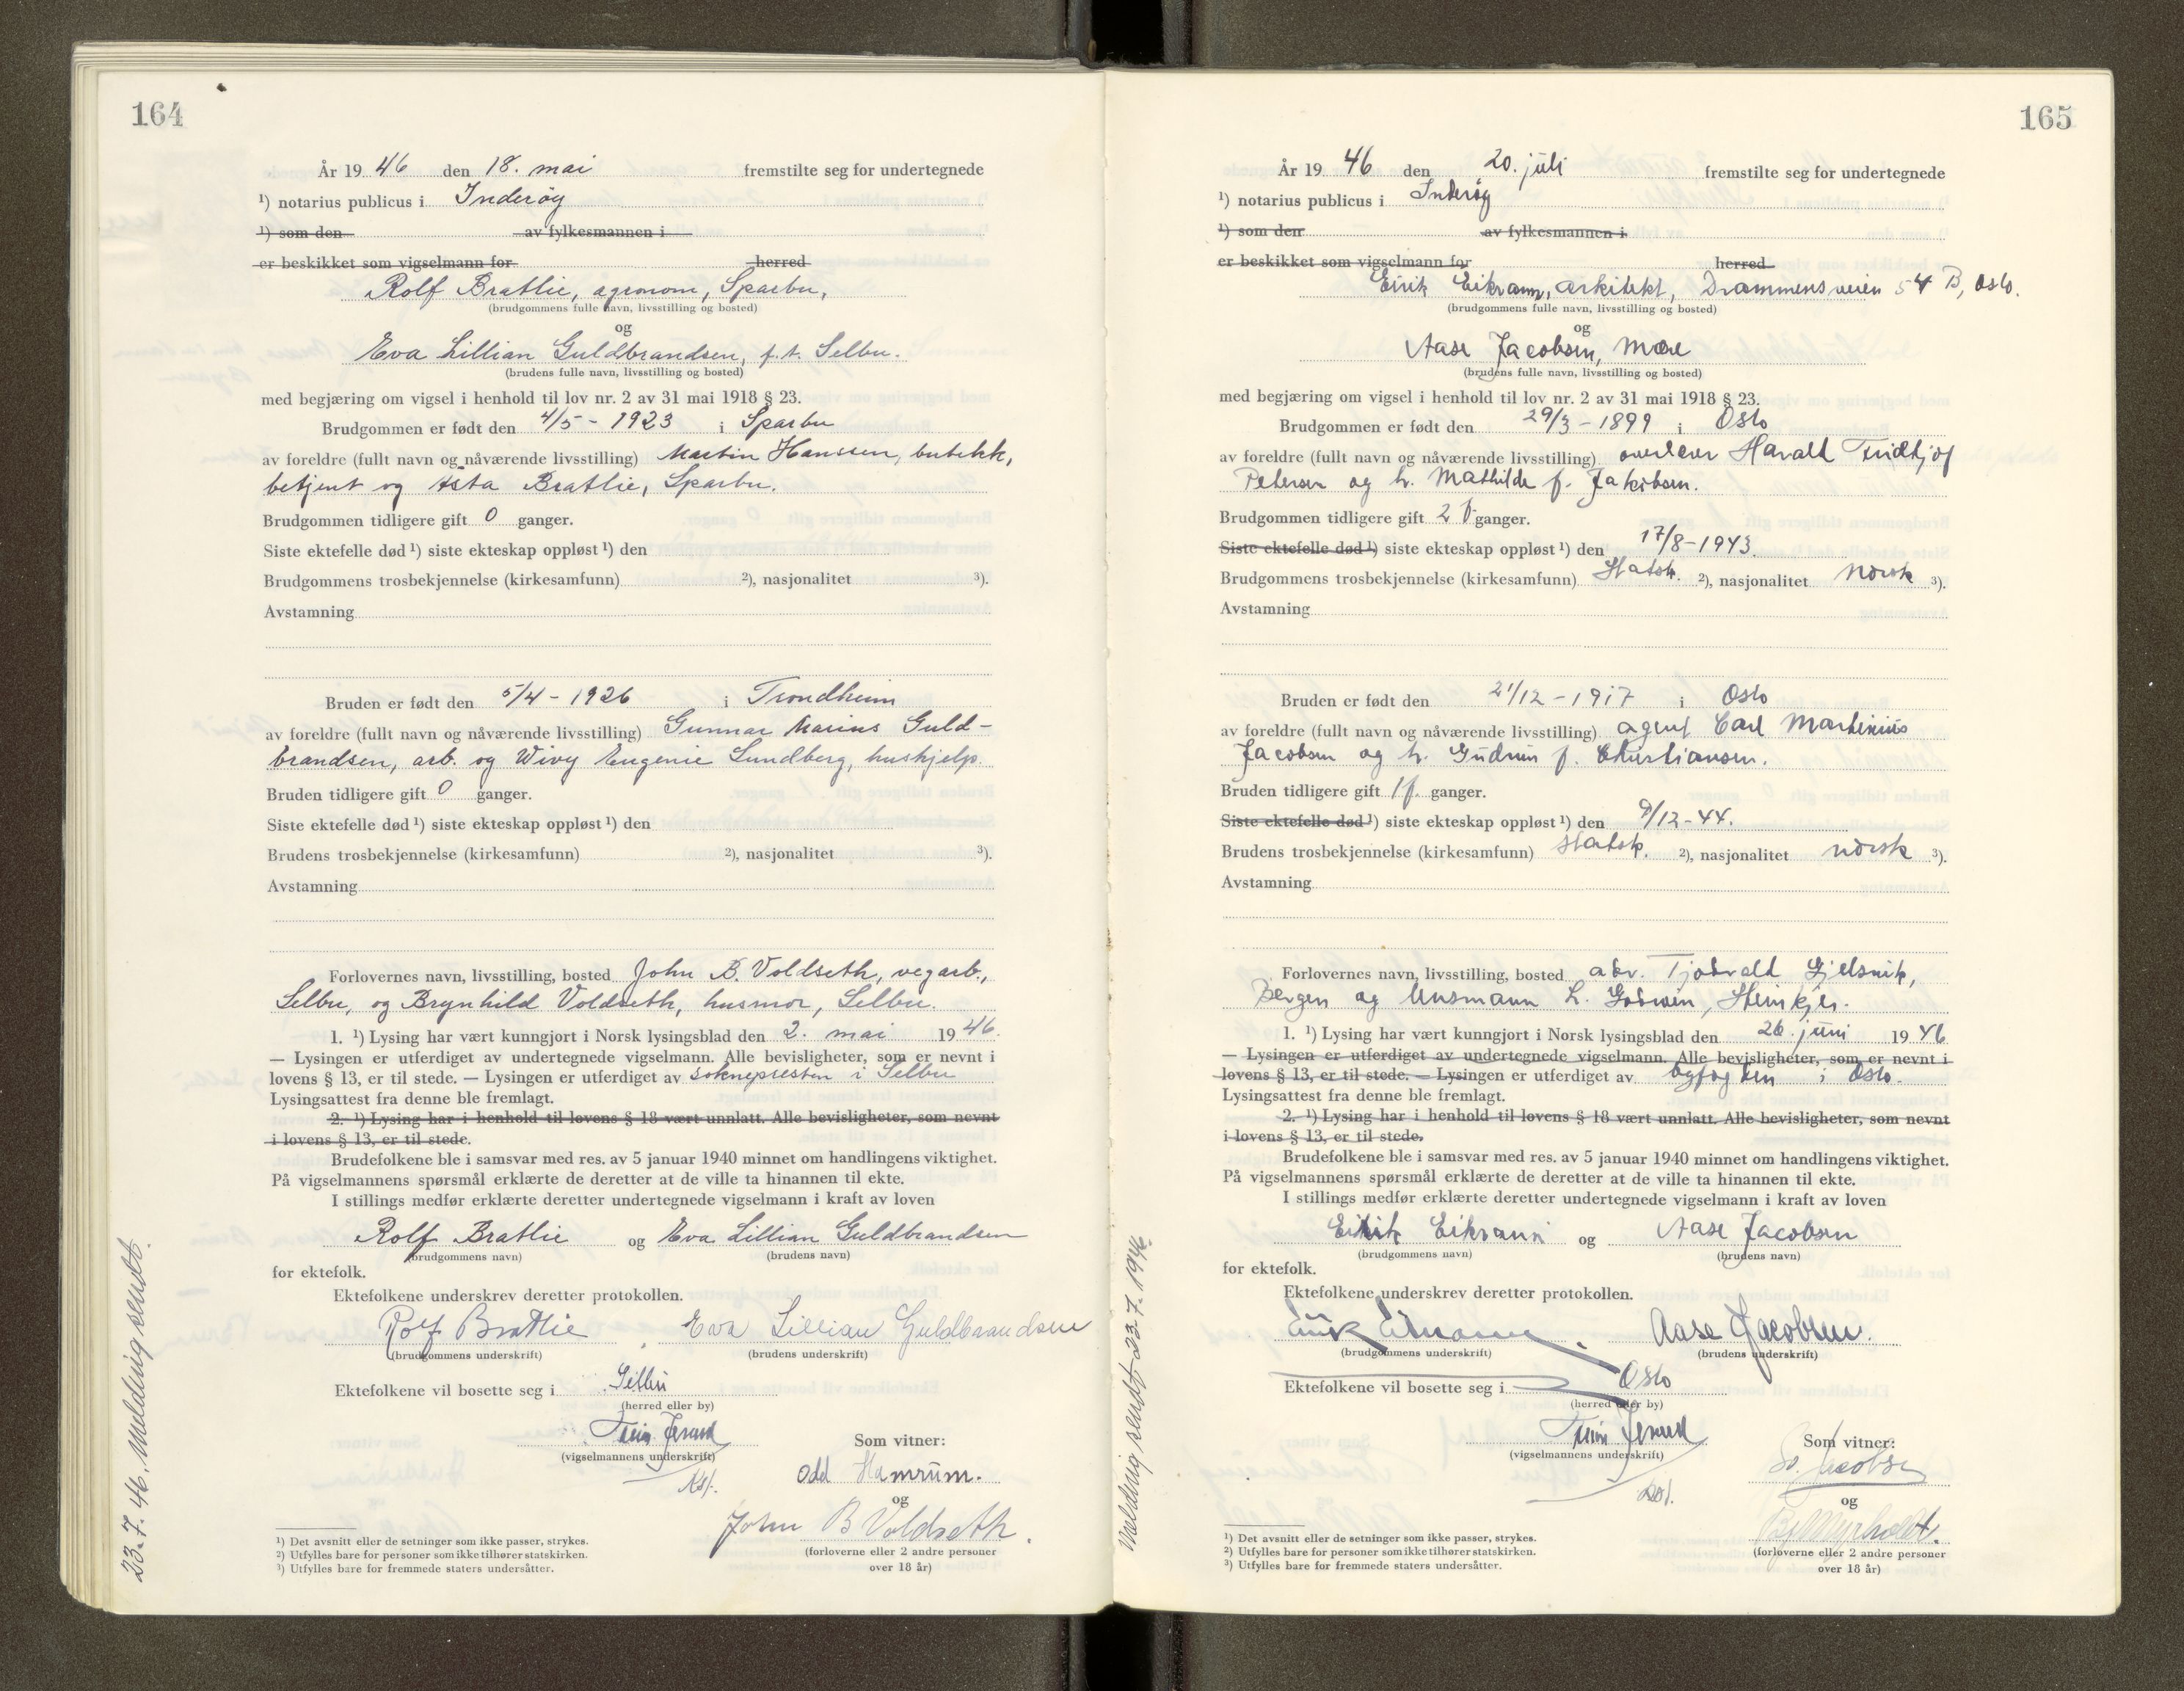 164
År 19 46 den 18. mai fremstilte seg for undertegnede
¹) notarius publicus i Inderøy
¹) som den av fylkesmannen i
er beskikket som vigselmann for herred
Rolf Bratlie, agronom, Sparbu,
(brudgommens fulle navn, livsstilling og bosted)
og
Eva Lillian Guldbrandsen, f.t. Selbu.
(brudens fulle navn, livsstilling og bosted)
med begjæring om vigsel i henhold til lov nr. 2 av 31 mai 1918 § 23.
Brudgommen er født den 4/5 - 1923 i Sparbu
av foreldre (fullt navn og nåværende livsstilling) Martin Hanssen, butikk,
betjent og Asta Bratlie, Sparbu.
Brudgommen tidligere gift 0 ganger.
Siste ektefelle død ¹) siste ekteskap oppløst ¹) den
Brudgommens trosbekjennelse (kirkesamfunn) ²), nasjonalitet ³).
Avstamning
Bruden er født den 5/4 - 1926 i Trondheim
av foreldre (fullt navn og nåværende livsstilling) Gunnar Marius Guld-
brandsen, arb. og Wivy Eugenie Lundberg, hushjelp.
Bruden tidligere gift 0 ganger.
Siste ektefelle død ¹) siste ekteskap oppløst ¹) den
Brudens trosbekjennelse (kirkesamfunn) ²), nasjonalitet ³).
Avstamning
Forlovernes navn, livsstilling, bosted John B. Voldseth, vegarb.,
Selbu, og Brynhild Voldseth, husmor, Selbu.
1. ¹) Lysing har vært kunngjort i Norsk lysingsblad den 2. mai 19 46.
— Lysingen er utferdiget av undertegnede vigselmann. Alle bevisligheter, som er nevnt i
lovens § 13, er til stede. — Lysingen er utferdiget av soknepresten i Selbu
Lysingsattest fra denne ble fremlagt.
2. ¹) Lysing har i henhold til lovens § 18 vært unnlatt. Alle bevisligheter, som nevnt
i lovens § 13, er til stede.
Brudefolkene ble i samsvar med res. av 5 januar 1940 minnet om handlingens viktighet.
På vigselmannens spørsmål erklærte de deretter at de ville ta hinannen til ekte.
I stillings medfør erklærte deretter undertegnede vigselmann i kraft av loven
Rolf Bratlie og Eva Lillian Guldbrandsen
(brudgommens navn) (brudens navn)
for ektefolk.
Ektefolkene underskrev deretter protokollen.
Rolf Bratlie Eva Lillian Guldbrandsen
(brudgommens underskrift) (brudens underskrift)
Ektefolkene vil bosette seg i Selbu
(herred eller by)
(vigselmannens underskrift)
Som vitner:
Odd Hamrum.
og
John B Voldseth.
(forloverne eller 2 andre personer
over 18 år)
¹) Det avsnitt eller de setninger som ikke passer, strykes.
²) Utfylles bare for personer som ikke tilhører statskirken.
³) Utfylles bare for fremmede staters undersåtter.
23.7.46. Melding sendt.
165
År 19 46 den 20. juli fremstilte seg for undertegnede
¹) notarius publicus i Inderøy
¹) som den av fylkesmannen i
er beskikket som vigselmann for herred
Eirik Eikrann, arkitekt, Drammensveien 54 B, Oslo.
(brudgommens fulle navn, livsstilling og bosted)
og
Aase Jacobsen, Mære
(brudens fulle navn, livsstilling og bosted)
med begjæring om vigsel i henhold til lov nr. 2 av 31 mai 1918 § 23.
Brudgommen er født den 29/3 - 1899 i Oslo
av foreldre (fullt navn og nåværende livsstilling) overlærer Harald Fridtjof
Petersen og h. Mathilde f. Jakobsen.
Brudgommen tidligere gift 2 ganger.
Siste ektefelle død ¹) siste ekteskap oppløst ¹) den 17/8 - 1943.
Brudgommens trosbekjennelse (kirkesamfunn) Statsk. ²), nasjonalitet norsk ³).
Avstamning
Bruden er født den 21/12 - 1917 i Oslo
av foreldre (fullt navn og nåværende livsstilling) agent Carl Martinius
Jacobsen og h. Gudrun f. Christiansen.
Bruden tidligere gift 1 ganger.
Siste ektefelle død ¹) siste ekteskap oppløst ¹) den 9/12 - 44.
Brudens trosbekjennelse (kirkesamfunn) Statsk. ²), nasjonalitet norsk ³).
Avstamning
Forlovernes navn, livsstilling, bosted adv. Gjelsvik,
Bergen og L. Steinkjer.
1. ¹) Lysing har vært kunngjort i Norsk lysingsblad den 26. juni 19 46
— Lysingen er utferdiget av undertegnede vigselmann. Alle bevisligheter, som er nevnt i
lovens § 13, er til stede. — Lysingen er utferdiget av byfogden i Oslo.
Lysingsattest fra denne ble fremlagt.
2. ¹) Lysing har i henhold til lovens § 18 vært unnlatt. Alle bevisligheter, som nevnt
i lovens § 13, er til stede.
Brudefolkene ble i samsvar med res. av 5 januar 1940 minnet om handlingens viktighet.
På vigselmannens spørsmål erklærte de deretter at de ville ta hinannen til ekte.
I stillings medfør erklærte deretter undertegnede vigselmann i kraft av loven
Eirik Eikrann og Aase Jacobsen
(brudgommens navn) (brudens navn)
for ektefolk.
Ektefolkene underskrev deretter protokollen.
Eirik Eikrann. Aase Jacobsen.
(brudgommens underskrift) (brudens underskrift)
Ektefolkene vil bosette seg i Oslo
(herred eller by)
(vigselmannens underskrift)
Som vitner:
Jacobsen
og
(forloverne eller 2 andre personer
over 18 år)
¹) Det avsnitt eller de setninger som ikke passer, strykes.
²) Utfylles bare for personer som ikke tilhører statskirken.
³) Utfylles bare for fremmede staters undersåtter.
Melding sendt 23.7.1946.